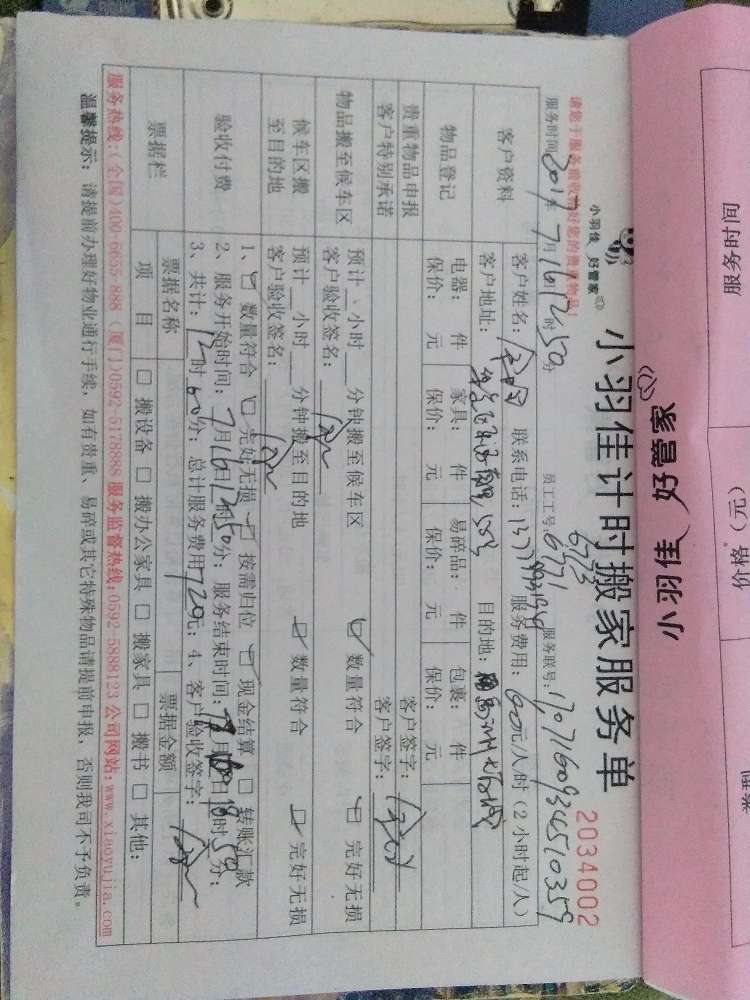 服务时间
价格（元）
小羽佳 好管家
小羽佳 好管家
小羽佳计时搬家服务单
2034002
请您于服务前收拾好您的贵重物品！
服务时间：2017年7月16日12时50分 员工工号：6771 6713 服务联号：
客户资料
客户姓名： 联系电话： 服务费用：60元/人/时（2小时起/人）
客户地址： 目的地：
物品登记
电器： 件 家具： 件 易碎品： 件 包裹： 件
保价： 元 保价： 元 保价： 元 保价： 元
贵重物品申报 客户签字：
客户特别承诺 客户签字：
物品搬至候车区
预计 小时 分钟搬至候车区 数量符合 完好无损
客户验收签名：
候车区搬至目的地
预计 小时 分钟搬至目的地 数量符合 完好无损
客户验收签名：
验收付费
1、 数量符合 完好无损 按需归位 现金结算 □ 转账汇款
2、服务开始时间：7月16日12时50分；服务结束时间： 月 日18时50分；
3、共计：12时60分；总计服务费用720元；4、客户验收签字：
票据栏
票据名称 票据金额
项 目 □ 搬设备 □ 搬办公家具 □ 搬家具 □ 搬书 □ 其他：
服务热线：（全国）400-6655-888（厦门）0592-5178888 服务监督热线：0592-5888123 公司网站：www.xiaoyujia.com
温馨提示：请提前办理好物业通行手续，如有贵重、易碎或其它特殊物品请提前申报，否则我司不予负责。